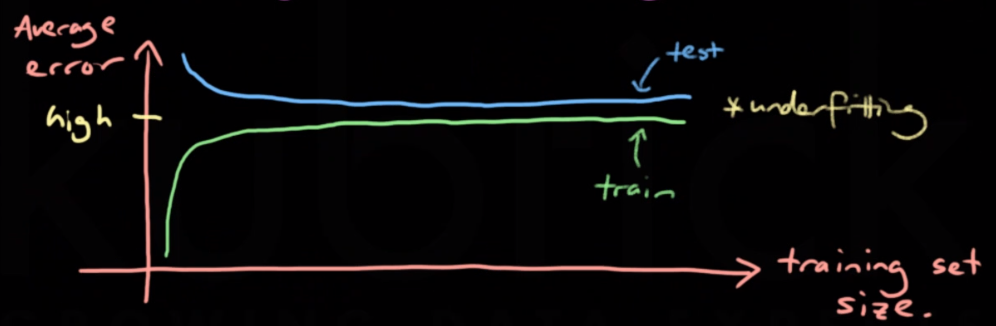 Average
error
test
high
* underfitting
train
training set
size.